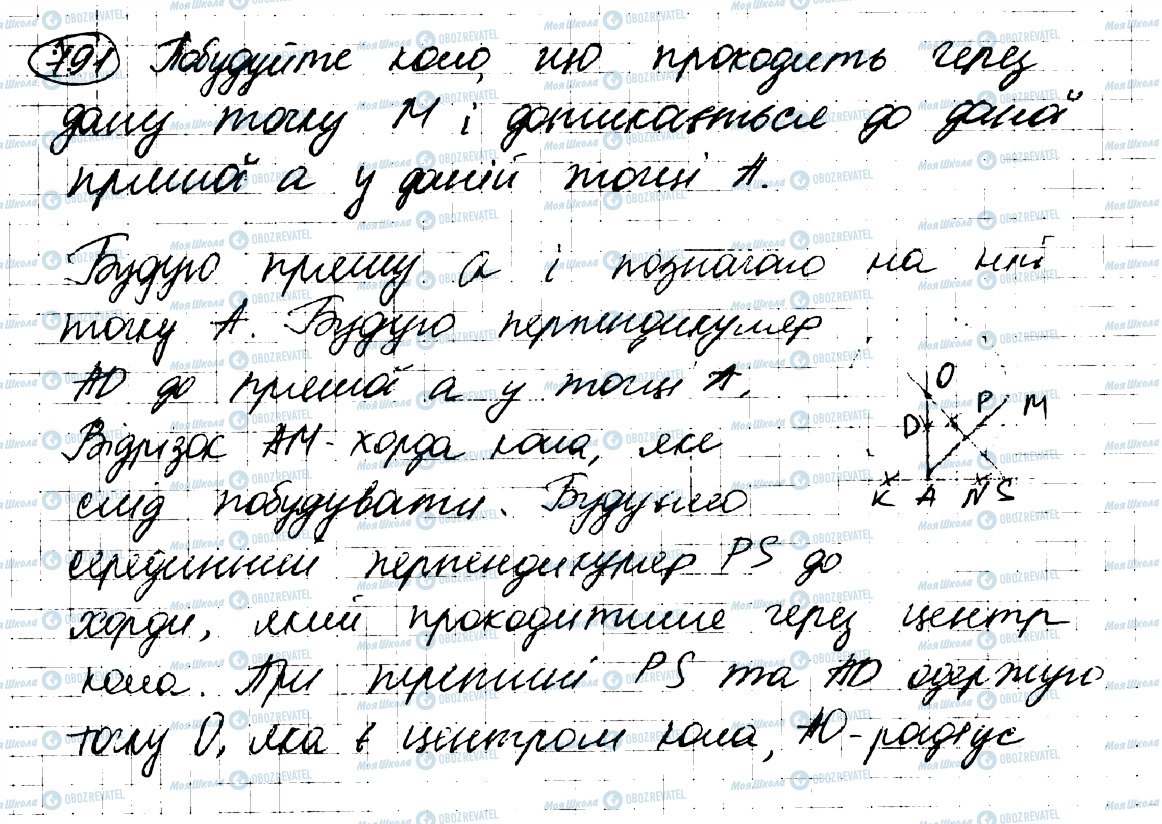 791 Побудуйте коло, що проходить через
дану точку М і дотикається до даної
прямої а у даній точці А.
Будую пряму а і позначаю на ній
точку А. Будую перпендикуляр
AD до прямої а у точці А.
Відрізок АМ - хорда кола, яке
слід побудувати. Будуємо
серединний перпендикуляр PS до
хорди, який проходитиме через центр
кола. При перетині PS та AD одержую
точку О, яка є центром кола, АО - радіус
O
P
M
D
K A N S